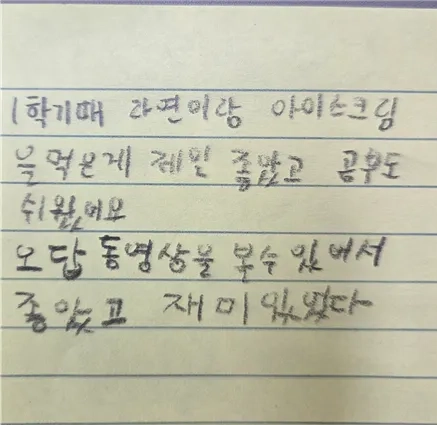 1학기때 라면이랑 아이스크림
을 먹은게 제일 좋았고 공부도
쉬웠어요
오답 동영상을 볼수 있어서
좋았고 재미있었다